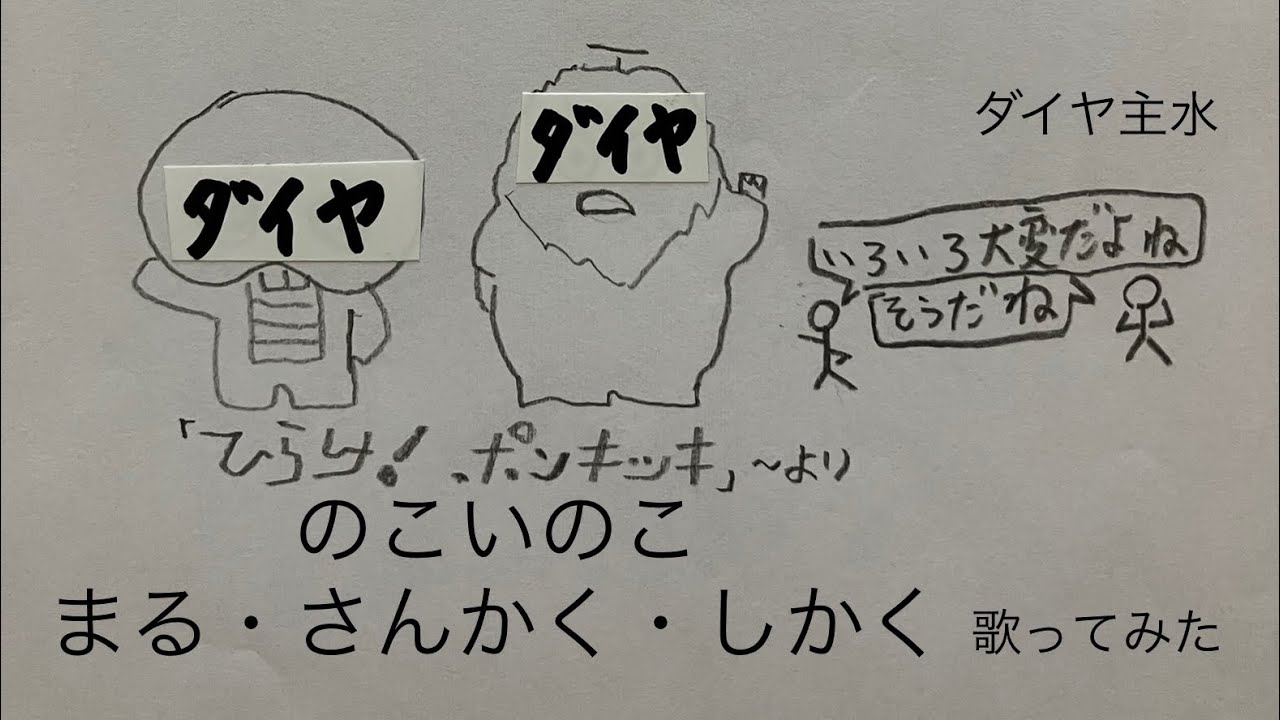 ダイヤ主水
ダイヤ
ダイヤ
いろいろ大変だよね
「そうだね
「ひらけ!ポンキッキ」~より
のこいのこ
まる・さんかく・しかく 歌ってみた